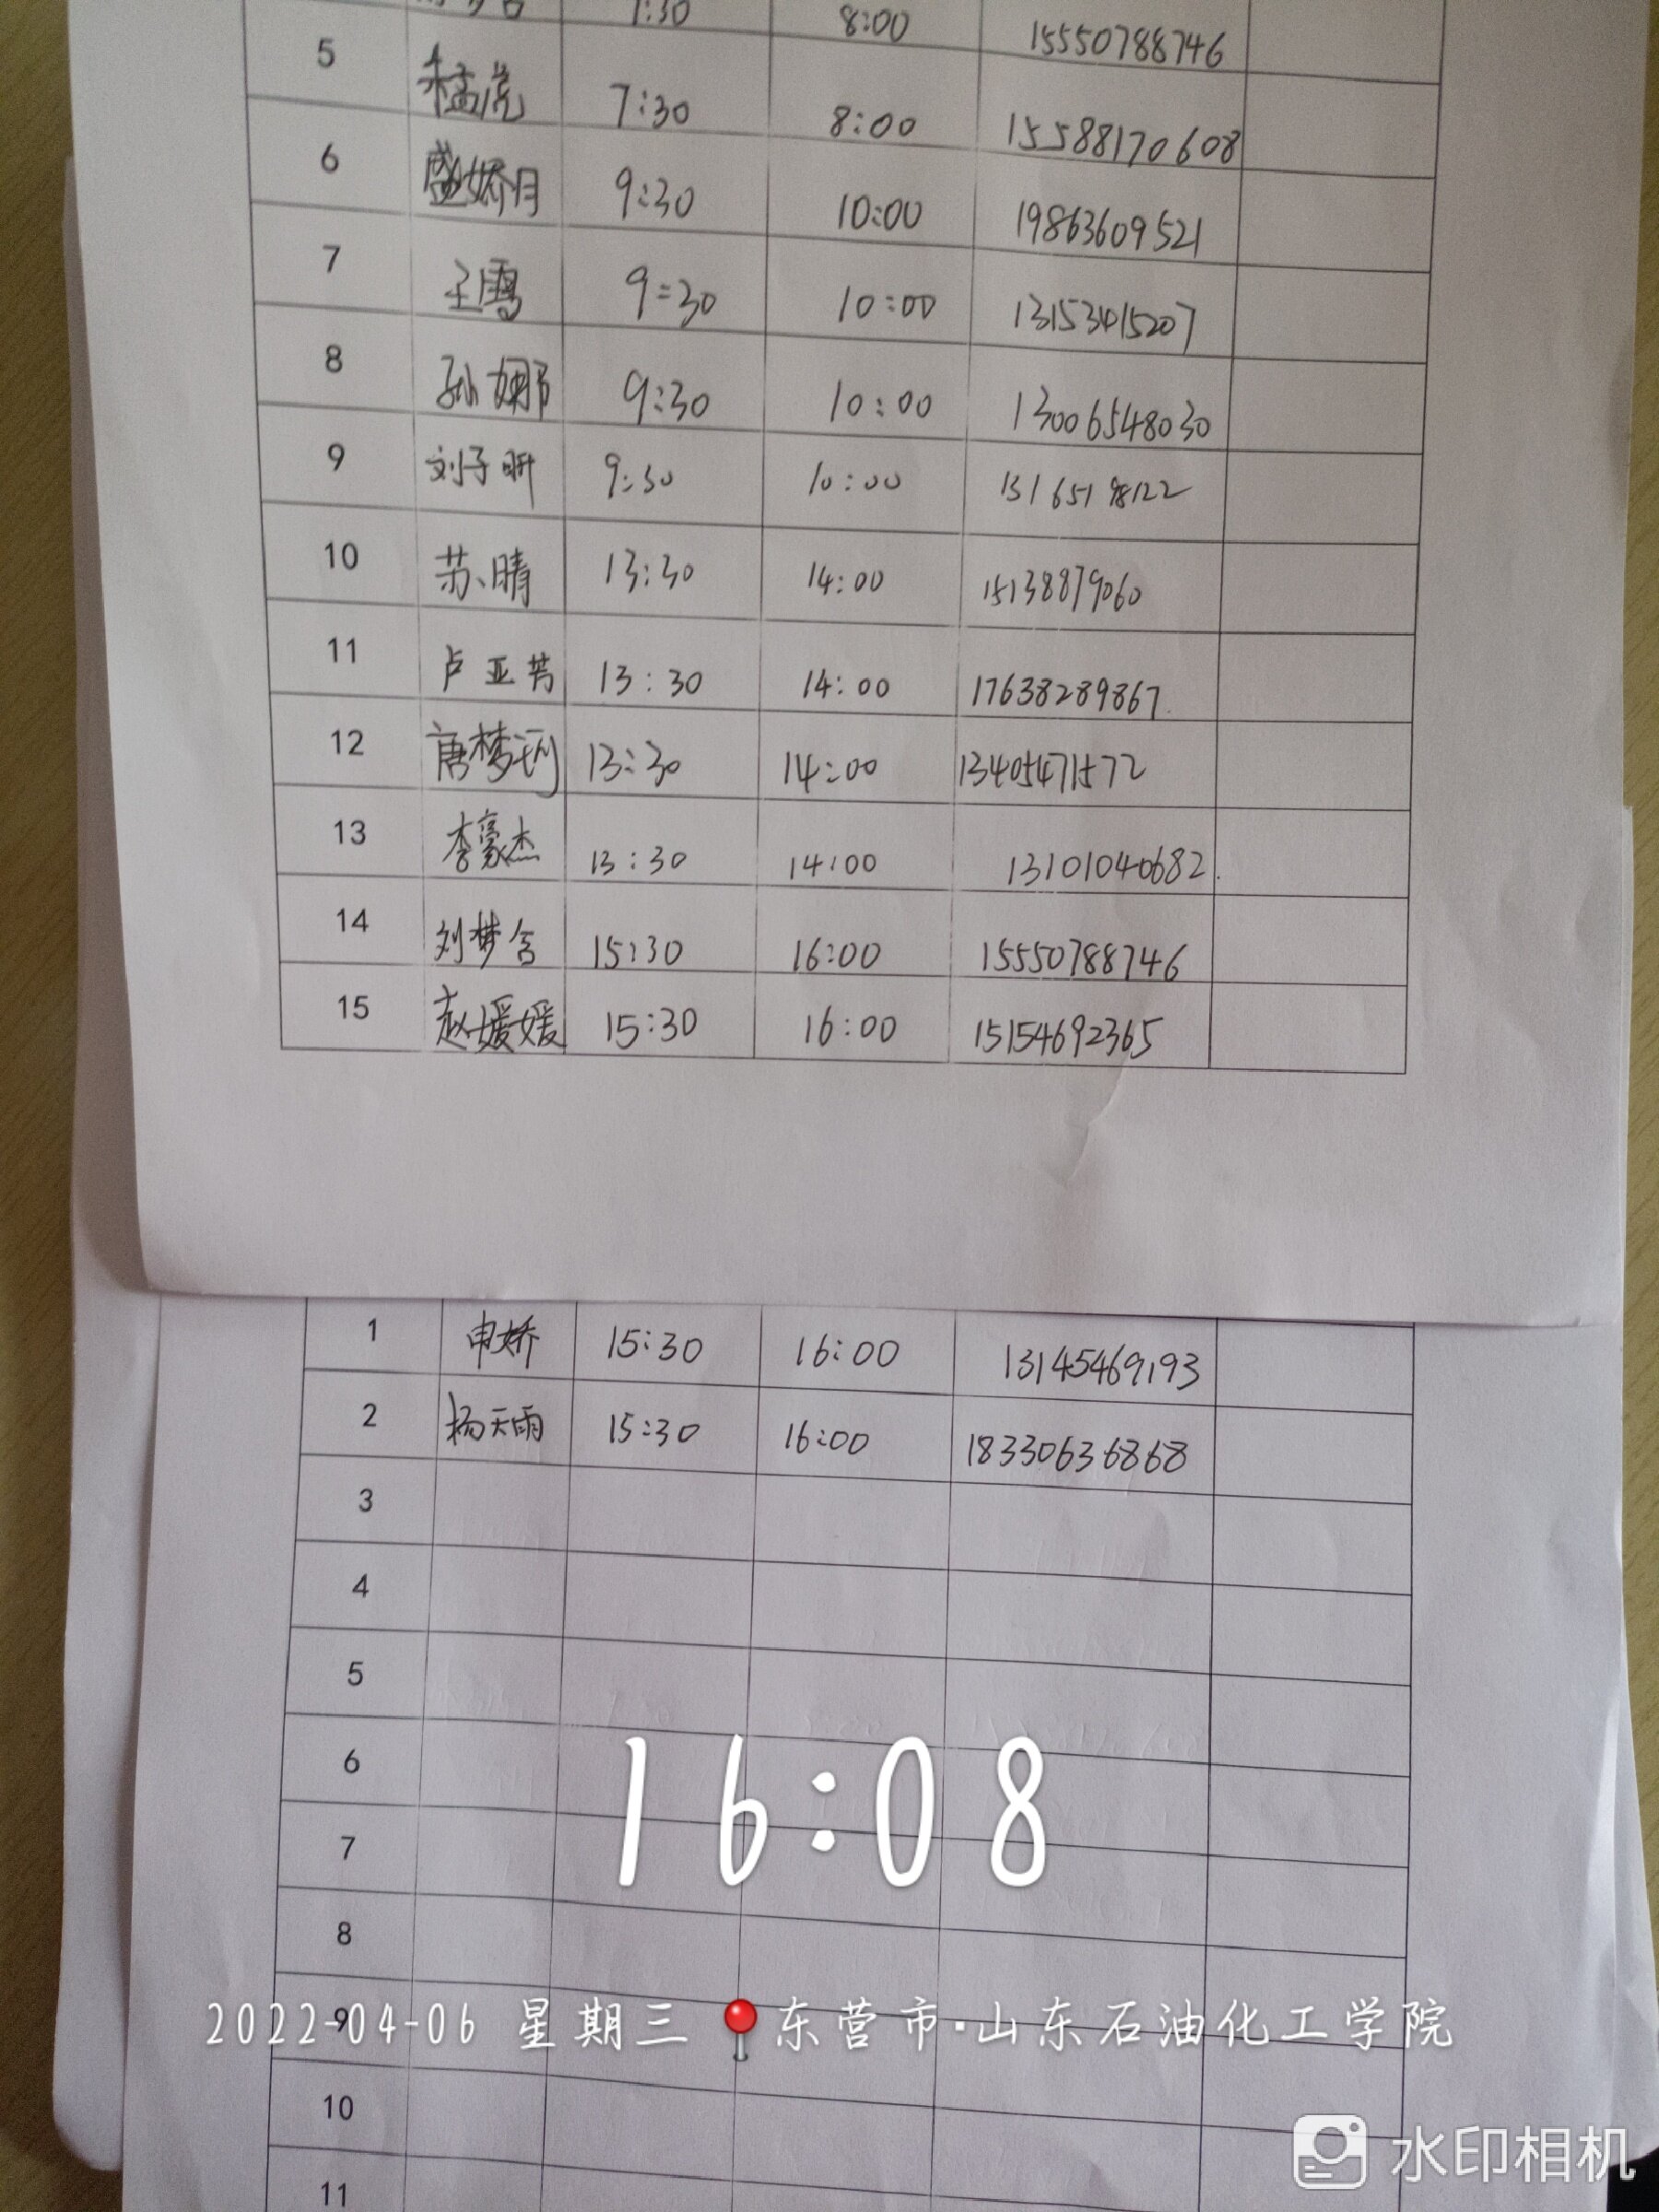 8:00 15550788746
5 7:30 8:00 15588170608
6 盛娇月 9:30 10:00 19863609521
7 王雪 9:30 10:00 13153415207
8 孙娜 9:30 10:00 13006548030
9 刘子昕 9:30 10:00 13165198122
10 苏晴 13:30 14:00 15138879060
11 卢亚芳 13:30 14:00 17638289867
12 唐梦 13:30 14:00 13405471572
13 李豪杰 13:30 14:00 13101040682
14 刘梦含 15:30 16:00 15550788746
15 赵媛媛 15:30 16:00 15154692365
1 申娇 15:30 16:00 13145469193
2 杨天雨 15:30 16:00 18330636868
3
4
5
6
16:08
7
8
9
2022-04-06 星期三 东营市·山东石油化工学院
10
水印相机
11